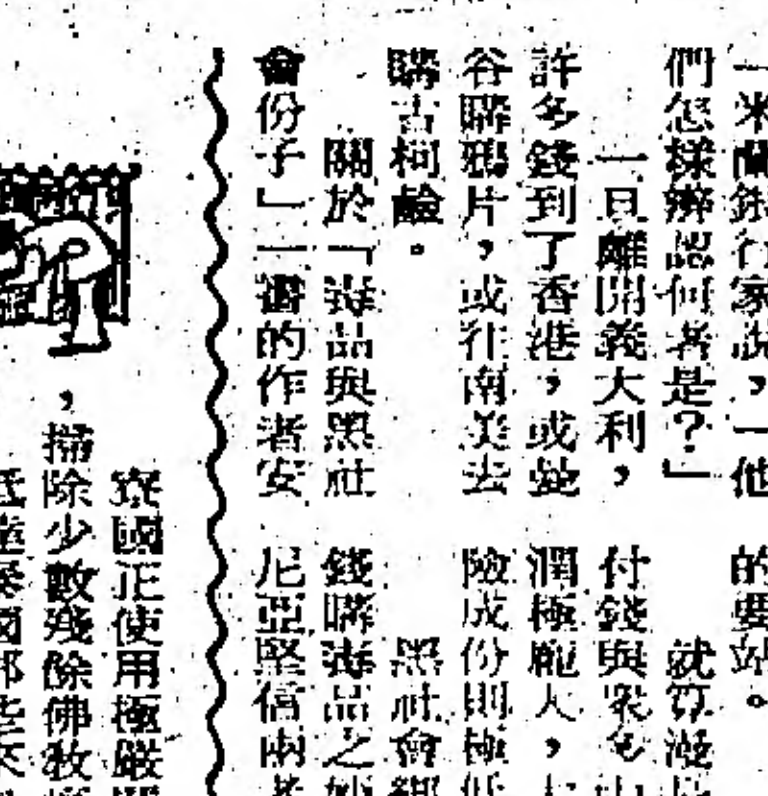 一米蘭銀行家說，一他
們怎樣辨認何者是？」
一旦離開義大利，
許多錢到了香港，或曼
谷購鴉片，或往南美去
購古柯鹼。
關於「毒品與黑社
會份子」一書的作者安
的要站。
就算
付錢與衆
潤極龐大，
險成份則極低
黑社會
錢購毒品之
尼亞堅信兩者
寮國正使用極嚴
，掃除少數殘餘佛教